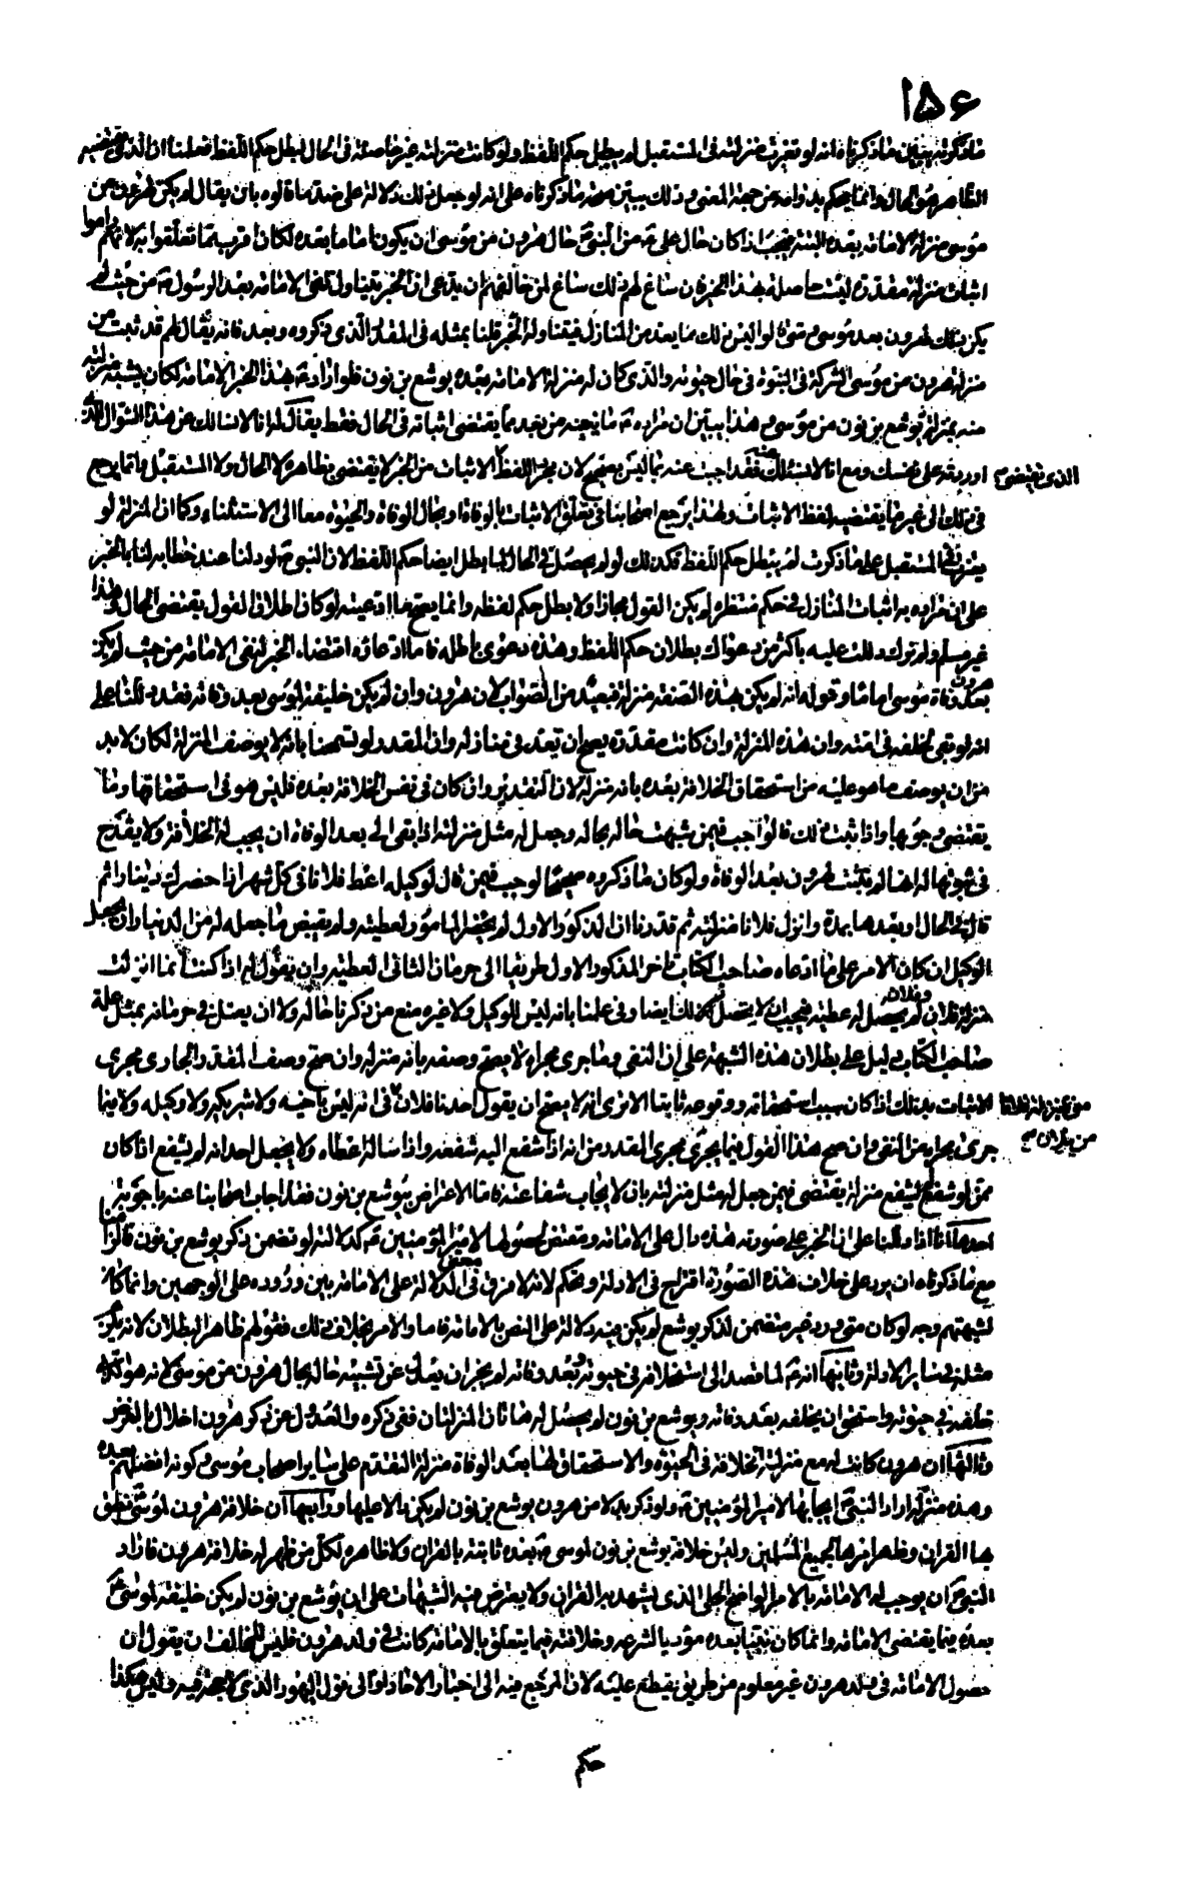 ١٥۶
ما ذكرته يبين ما ذكرناه انه لو تغيرت منزلته فى المستقبل لم يبطل حكم اللفظ ولو كانت منزلته غير حاصلة فى الحال لبطل حكم اللفظ فعلمنا ان الذى يقتضيه
الظاهر هو الحال وانما يحكم بدوامه من جهة المعنى وذلك يبين صحة ما ذكرناه على انه لو جعل ذلك دلالة على ضد ما قالوه بان يقال لم يكن لهرون من
موسى منزلة الامامة بعده البتة فيجب اذا كان حال على ع من النبى ص حال هرون من موسى ان يكون اماما بعده لكان اقرب مما تعلقوا به لانهم راموا
اثبات منزلة مقدرة ليست حاصلة بهذا الخبر فان ساغ لهم ذلك ساغ لمن خالفهم ان يدعى ان الخبر يتناول نفى الامامة بعد الرسول ص من حيث لم
يكن ذلك لهرون بعد موسى ومتى قالوا ليس ذلك مما يعد من المنازل فيتناوله الخبر قلنا بمثله فى المقدر الذى ذكروه وبعد فانه يقال لهم قد ثبت من
منزلة هرون من موسى الشركة فى النبوة فى حال حيوته والذى كان له منزلة الامامة بعده يوشع بن نون فلو اراد ع بهذا الخبر الامامة لكان يشبه منزلته
منه بمنزلة يوشع بن نون من موسى وهذا يبين ان مراده ع ما يجنه من بعد مما يقتضى اثباته فى الحال فقط يقال له انا لا نسالك عن هذا السؤال الذى
اوردته على نفسك ومع انا لا نسئلك عنه فقد اجبت عنه بما ليس بصحيح لان مجرد اللفظ الاثبات من الخبر لا يقتضى بظاهره لا الحال ولا المستقبل وانما يرجع
الذى يقتضى
فى ذلك الى غير ما يقتضيه لفظ الاثبات ولهذا يرجع اصحابنا فى تعلق الاثبات بالوفاة او بحال الوفاة والحيوة معا الى الاستثناء وكما ان المنزلة لو
تغيرت فى المستقبل على ما ذكرت لم يبطل حكم اللفظ فكذلك لو لم يحصل فى الحال لما بطل ايضا حكم اللفظ لان النبى ص لو دلنا عند خطابه لنا بالخبر
على ان مراده به اثبات المنازل فى حكم منتظر لم يكن القول مجازا ولا بطل حكم لفظه وانما يصح ما ادعيته لو كان اطلاق القول يقتضى الحال وهذا
غير مسلم ولم تورد لك عليه باكثر من دعواك بطلان حكم اللفظ وهذه دعوى باطلة فاما ادعاؤه اقتضاء الخبر لنفى الامامة من حيث لم يكن هرون
بعد وفاة موسى اماما وقوله انه لم يكن بهذه الصفة منزلة فبعيد من الصواب لان هرون وان لم يكن خليفة لموسى بعد وفاته فقد دللنا على
انه لو بقى لخلفه فى امته وان هذه المنزلة وان كانت مقدرة يصح ان تعد فى منازله وان المقدر لو تسمحنا بانه لا يوصف بالمنزلة لكان لا بد
من ان يوصف ما هو عليه من استحقاق الخلافة بعده بانه منزلة لان التقدير وان كان فى نفس الخلافة بعده فليس هو فى استحقاقها وما
يقتضى وجوبها واذا ثبت ذلك فالواجب فيمن شبهت حاله بحاله وجعل له مثل منزلته اذا بقى الى بعد الوفاة ان يجب له الخلافة ولا يقدح
فى ثبوتها له انها لم يثبت لهرون بعد الوفاة ولو كان ما ذكروه صحيحا لوجب فيمن قال لوكيله اعط فلانا فى كل شهر اذا حضرك دينارا ثم
قال فى الحال او بعدها بمدة وانزل فلانا منزلته ثم قدرنا ان المذكور الاول لم يحضر المامور لعطيته ولم يقبض ما جعله له من الدينار ان يجعل
الوكيل ان كان الامر على ما ادعاه صاحب الكتاب تاخر المذكور الاول طريقا الى حرمان الثانى العطية وان يقول له اذا كنت انما انزلت
منزلة فلان وفلان لم يحصل له عطية فيجب ان لا يتحصل لك ذلك ايضا وفى علمنا بانه ليس للوكيل ولا غيره منع من ذكرنا حاله ولا ان يعتل فى حرمانه بمثل علة
صاحب الكتاب دليل على بطلان هذه الشبهة على ان النفى وما جرى مجراه لا يصح وصفه بانه منزلة وان صح وصف المقدر الجارى مجرى
الاثبات بذلك اذا كان سبب استحقاقه ووقوعه ثابتا الا ترى انه لا يصح ان يقول احدنا فلان فى انه ليس باخيه ولا شريكه ولا وكيله ولا فيما
منى بمنزلة فلان
من فلان صح
جرى مجراه من النفى وان صح هذا القول فيما يجرى مجرى المقدر من انه اذا شفع اليه شفعه واذا ساله اعطاه ولا يجعل احد انه لم يشفع اذا كان
ممن لو شفع لشفع منزلة يقتضى فيمن جعل له مثل منزلته بان لا يجاب شفاعته فاما الاعتراض بيوشع بن نون فقد اجاب اصحابنا عنه باجوبة
احدها انا اذا دللنا على ان الخبر على صورته هذه دال على الامامة ومقتض لحصولها لامير المؤمنين ع كدلالته لو تضمن ذكر يوشع بن نون فالزامنا
مع ما ذكرناه ان يرد على خلاف هذه الصورة اقتراح فى الادلة وتحكم لانه لا فرق فى الدلالة على الامامة بين وروده على الوجهين وانما كان
لشبهتهم وجه لو كان متى ورد غير متضمن لذكر يوشع لم يكن فيه دلالة على النص بالامامة فاما والامر بخلاف ذلك فقولهم ظاهر البطلان لانه يكون
مثله فى سائر الادلة وثانيها انه ع لما قصد الى استخلافه فى حيوته وبعد وفاته لم يجز ان يعدل عن تشبيه حاله بحال هرون من موسى لانه هو الذى
خلفه فى حيوته واستحق ان يخلفه بعد وفاته ويوشع بن نون لم يحصل له هاتان المنزلتان ففى ذكره والعدول عن ذكر هرون اخلال بالغرض
وثالثها ان هرون كانت له مع منزلة الخلافة فى الحيوة والاستحقاق لها بعد الوفاة منزلة التقدم على سائر اصحاب موسى وكونه افضلهم بعده
وهذه منزلة اراد النبى ص ايجابها لامير المؤمنين ع ولو ذكر بدلا من هرون يوشع بن نون لم يكن دالا عليها ورابعها ان خلافة هرون لموسى نطق
بها القران وظهر امرها لجميع المسلمين وليس خلافة يوشع بن نون لموسى بعده ثابتة بالقران ولا ظاهرة لكل من ظهر له خلافة هرون فاراد
النبى ص ان يوجب له الامامة بالامر الواضح الجلى الذى يشهد به القران ولا يعترض فيه الشبهات على ان يوشع بن نون لم يكن خليفة لموسى ع
بعده فيما يقتضى الامامة وانما كان نبيا بعده مؤديا لشرعه وخلافته فيما يتعلق بالامامة كانت فى ولد هرون فليس للمخالف ان يقول ان
حصول الامامة فى ولد هرون غير معلوم من طريق يقطع عليه لان المرجع فيه الى اخبار الاحاد او الى قول اليهود الذى لا حجة فيه وليس هكذا
حكم